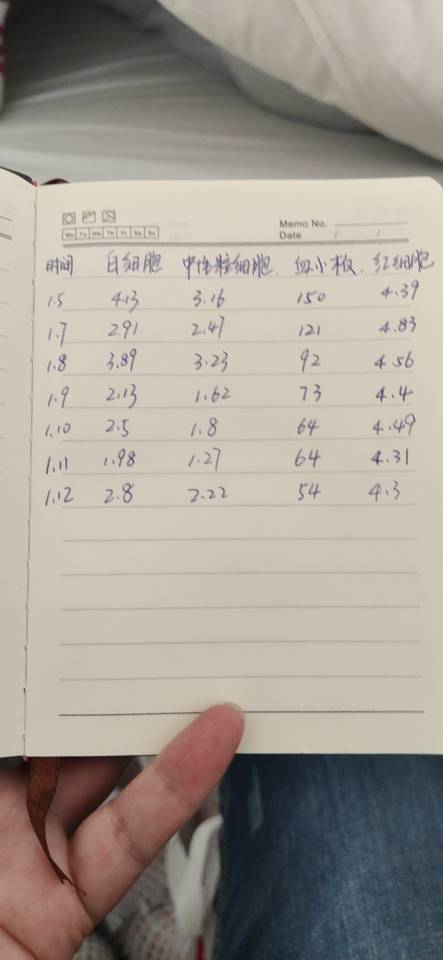 Memo No.
Mo Tu We Th Fr Sa Su Date / /
时间 白细胞 中性粒细胞 血小板 红细胞
1.5 4.13 3.16 150 4.39
1.7 2.91 2.47 121 4.83
1.8 3.89 3.23 92 4.56
1.9 2.13 1.62 73 4.4
1.10 2.5 1.8 64 4.49
1.11 1.98 1.27 64 4.31
1.12 2.8 2.22 54 4.3